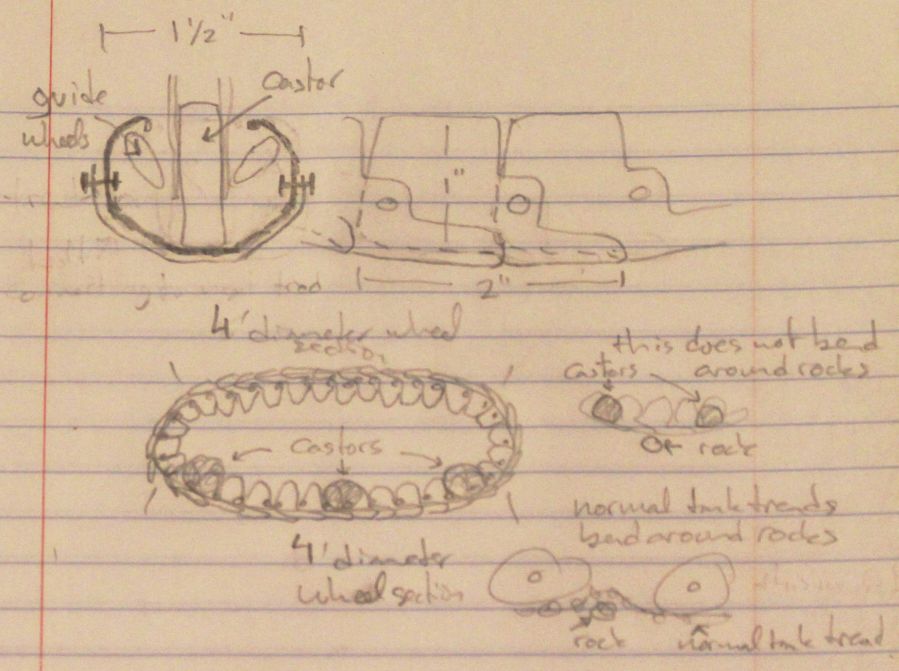 1 1/2"
castor
guide
wheels
1"
2"
4' diameter wheel
section
this does not bend
around rocks
castors
castors
rock
normal tank treads
bend around rocks
4' diameter
wheel section
rock
normal tank tread